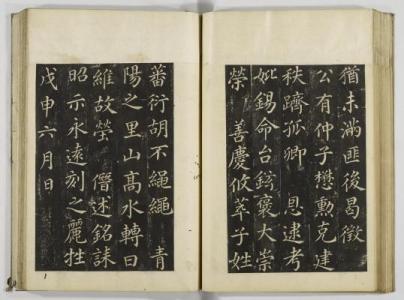 猶未滿匪後曷徵
公有仲子懋勳克建
秩躋孤卿 恩逮考
妣錫命台鉉褒大崇
榮 善慶攸萃子姓
蕃衍胡不繩繩 青
陽之里山高水轉曰
維故榮 僭述銘誄
昭示永遠刻之麗牲
戊申六月日